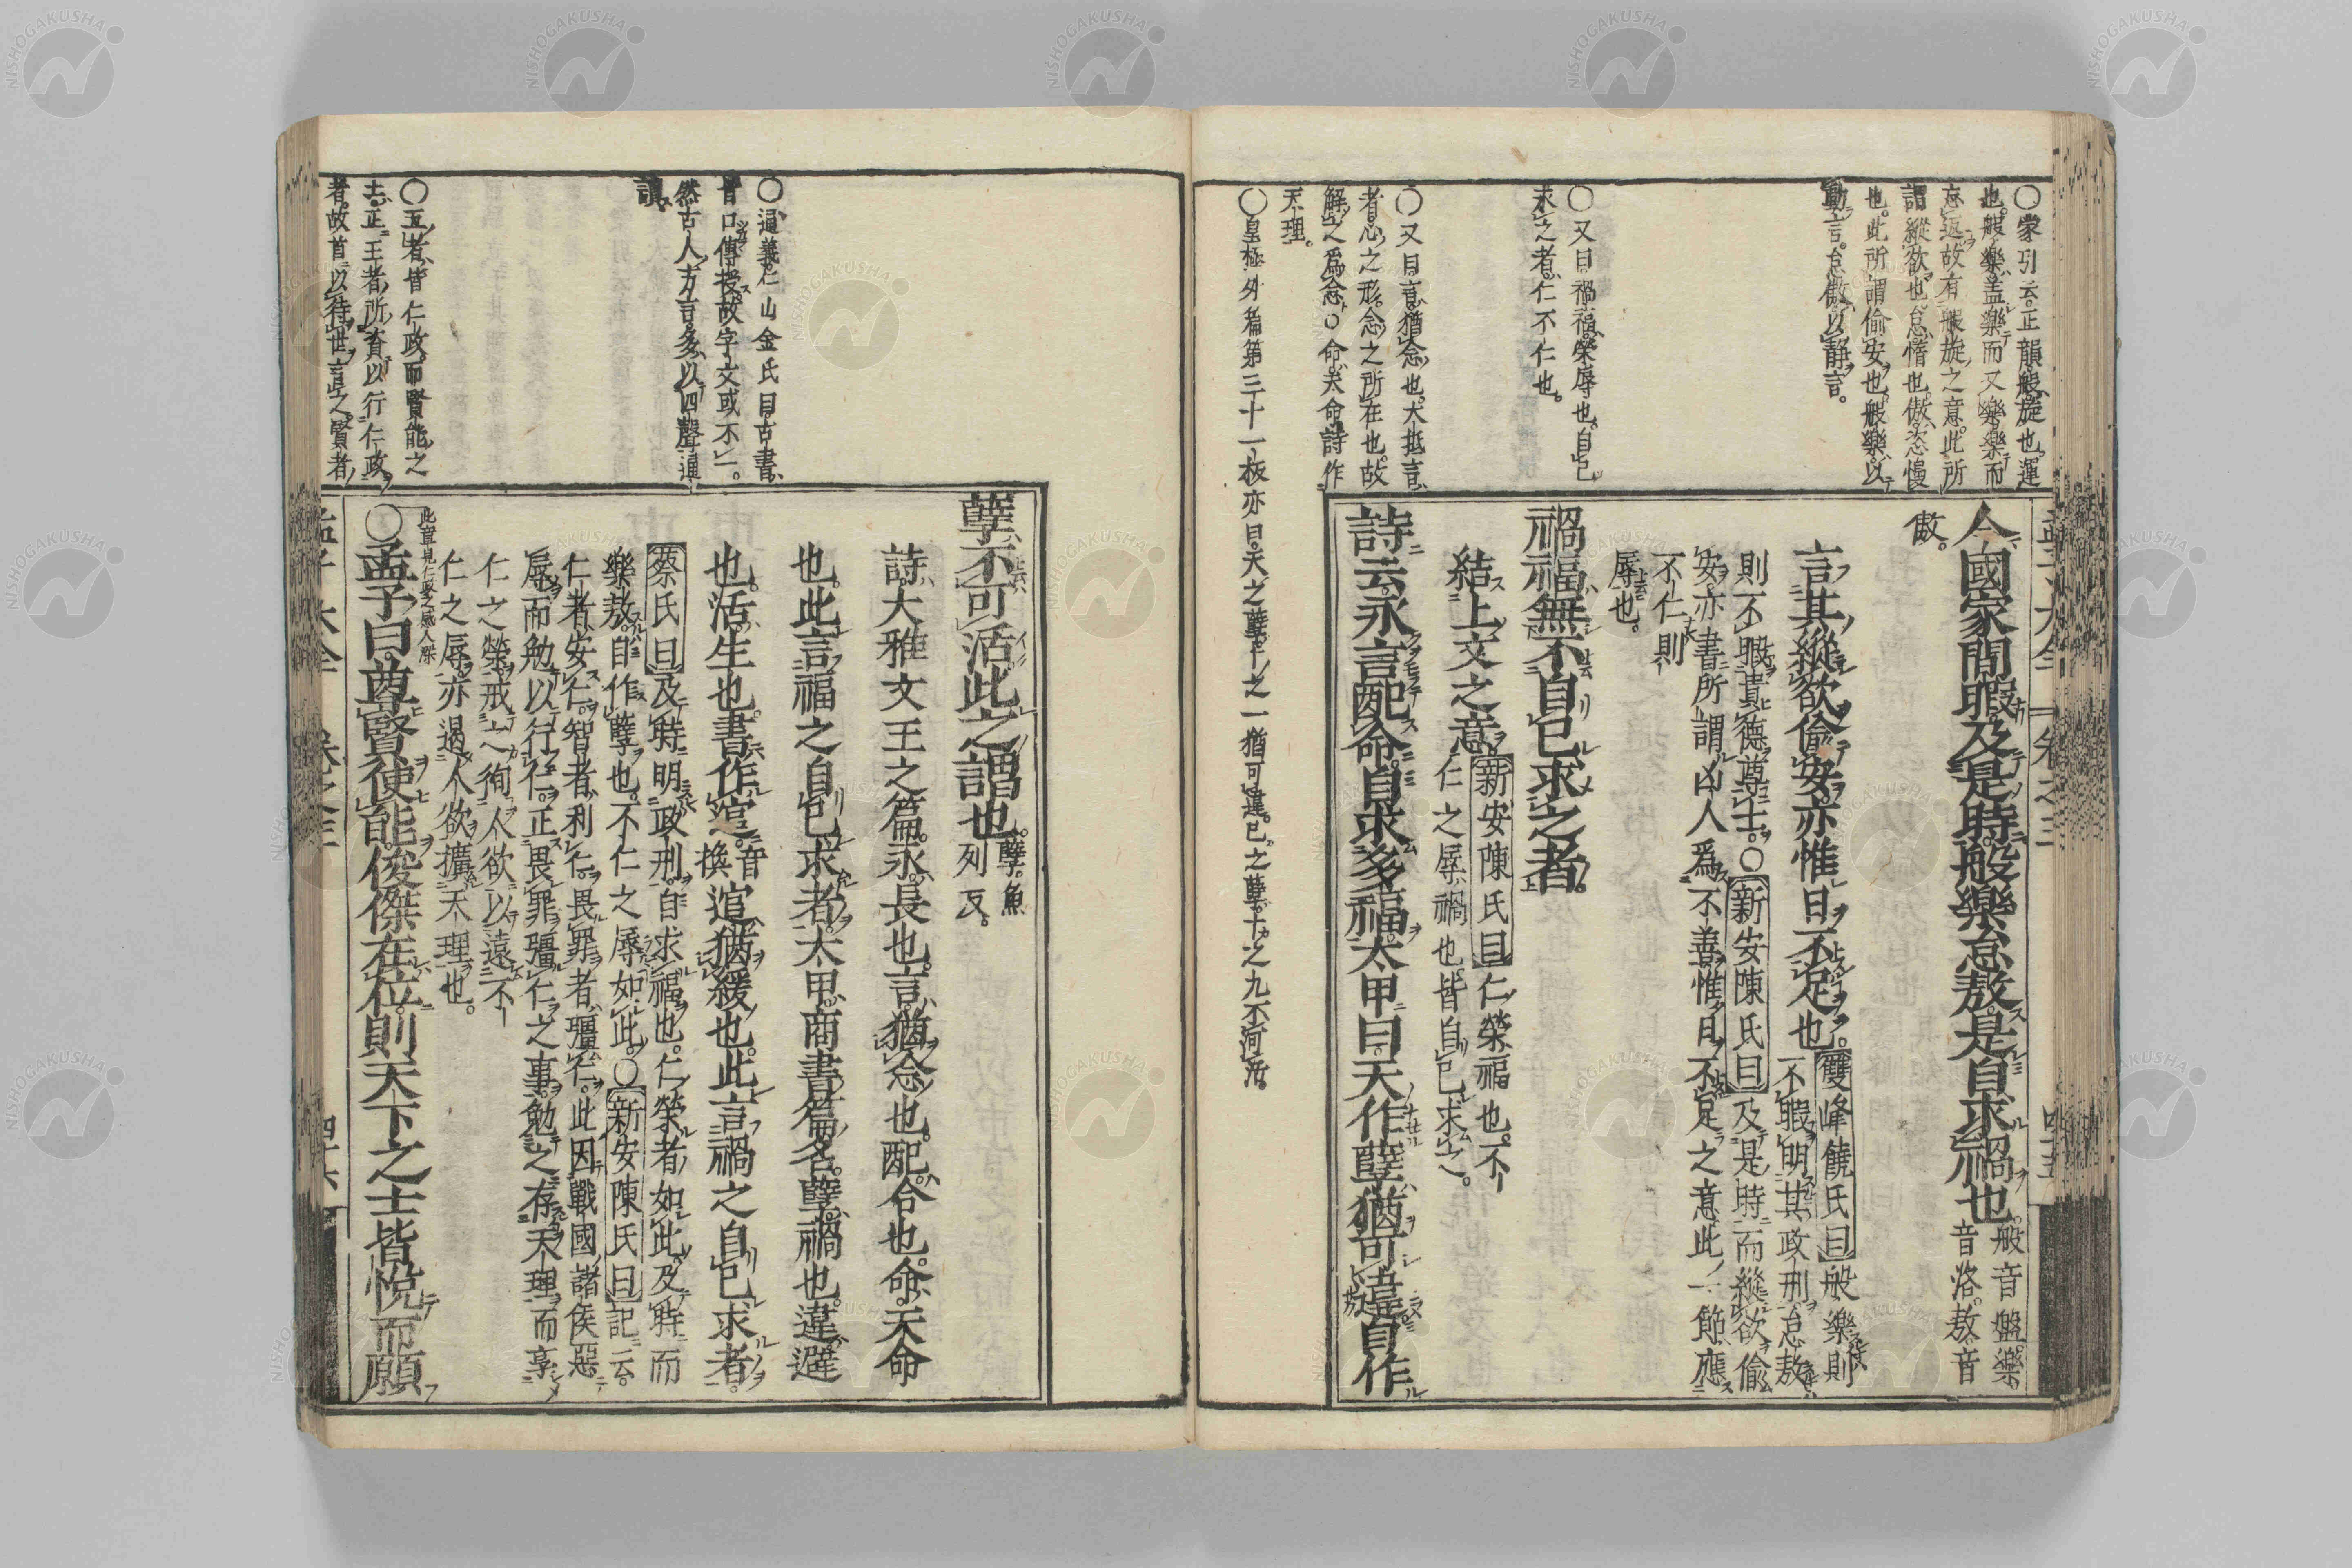 〇蒙引云正韻般旋也運
也般樂盖樂而又樂樂而
忘返故有般旋之意此所
謂縱欲也怠惰也傲恣慢
也此所謂偷安也般樂以
動言怠傲以靜言
〇又曰禍福榮辱也自己
求之者仁不仁也
〇又曰言猶念也大抵言
者心之形念之所在也故
解之爲念〇命天命詩作
天理
〇皇極外篇第三十一板亦曰天之孽十之一猶可違己之孽十之九不可活
今國家閒暇及是時般樂怠敖是自求禍也般音盤樂
音洛敖音
傲
言其縱欲偷安亦惟日不足也雙峰饒氏曰般樂則
不暇明其政刑怠敖
則不暇貴德尊士〇新安陳氏曰及是時而縱欲偷
安亦書所謂凶人爲不善惟日不足之意此一節應
不仁則
辱也
禍福無不自己求之者
結上文之意新安陳氏曰仁榮福也不
仁之辱禍也皆自己求之
詩云永言配命自求多福太甲曰天作孽猶可違自作
孟子大全 卷之三 四十五
〇通義仁山金氏曰古書
皆口傳授故字文或不一
然古人方言多以四聲通
讀
〇五者皆仁政而賢能之
去正王者所資以行仁政
者故首以待世言之賢者
孽不可活此之謂也孽魚
列反
詩大雅文王之篇永長也言猶念也配合也命天命
也此言福之自己求者太甲商書篇名孽禍也違避
也活生也書作逭音
換逭猶緩也此言禍之自己求者
蔡氏曰及時明政刑自求福也仁榮者如此及時而
樂敖自作孽也不仁之辱如此〇新安陳氏曰記云
仁者安仁智者利仁畏罪者彊仁此因戰國諸侯惡
辱而勉以行仁正畏罪彊仁之事勉之存天理而享
仁之榮戒之徇人欲以遠不
仁之辱亦遏人欲擴天理也
此章見仁政之感人深
〇孟子曰尊賢使能俊傑在位則天下之士皆悅而願
孟子大全 卷之三 四十六